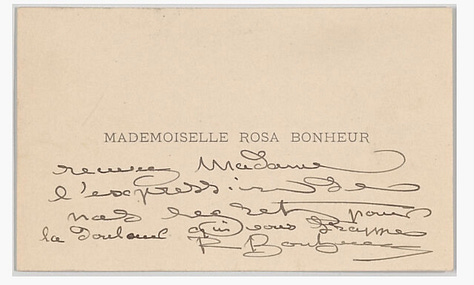 MADEMOISELLE ROSA BONHEUR
recevez Madame
l'expression de
mes regret pour
la douleur qui vous frappe
R Bonheur